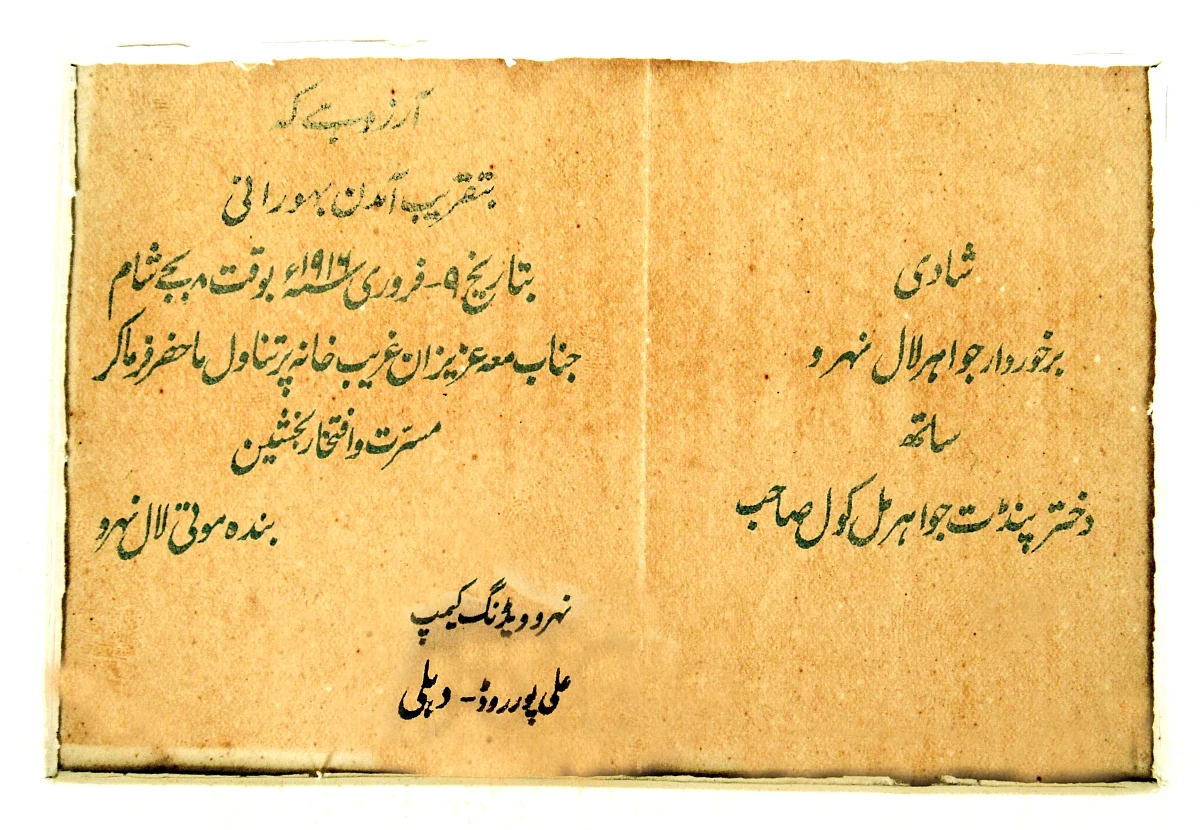 شادی
برخوردار جواہر لال نہرو
ساتھ
دختر پنڈت جواہر مل کول صاحب
آرزو ہے کہ
بتقریب آمدن بہورانی
بتاریخ ۹ - فروری سنہ ۱۹۱۶ء بوقت ۸ بجے شام
جناب معہ عزیزان غریب خانہ پر تناول ماحضر فرما کر
مسرّت و افتخار بخشیں
بندہ موتی لال نہرو
نہرو ویڈنگ کیمپ
علی پور روڈ - دہلی